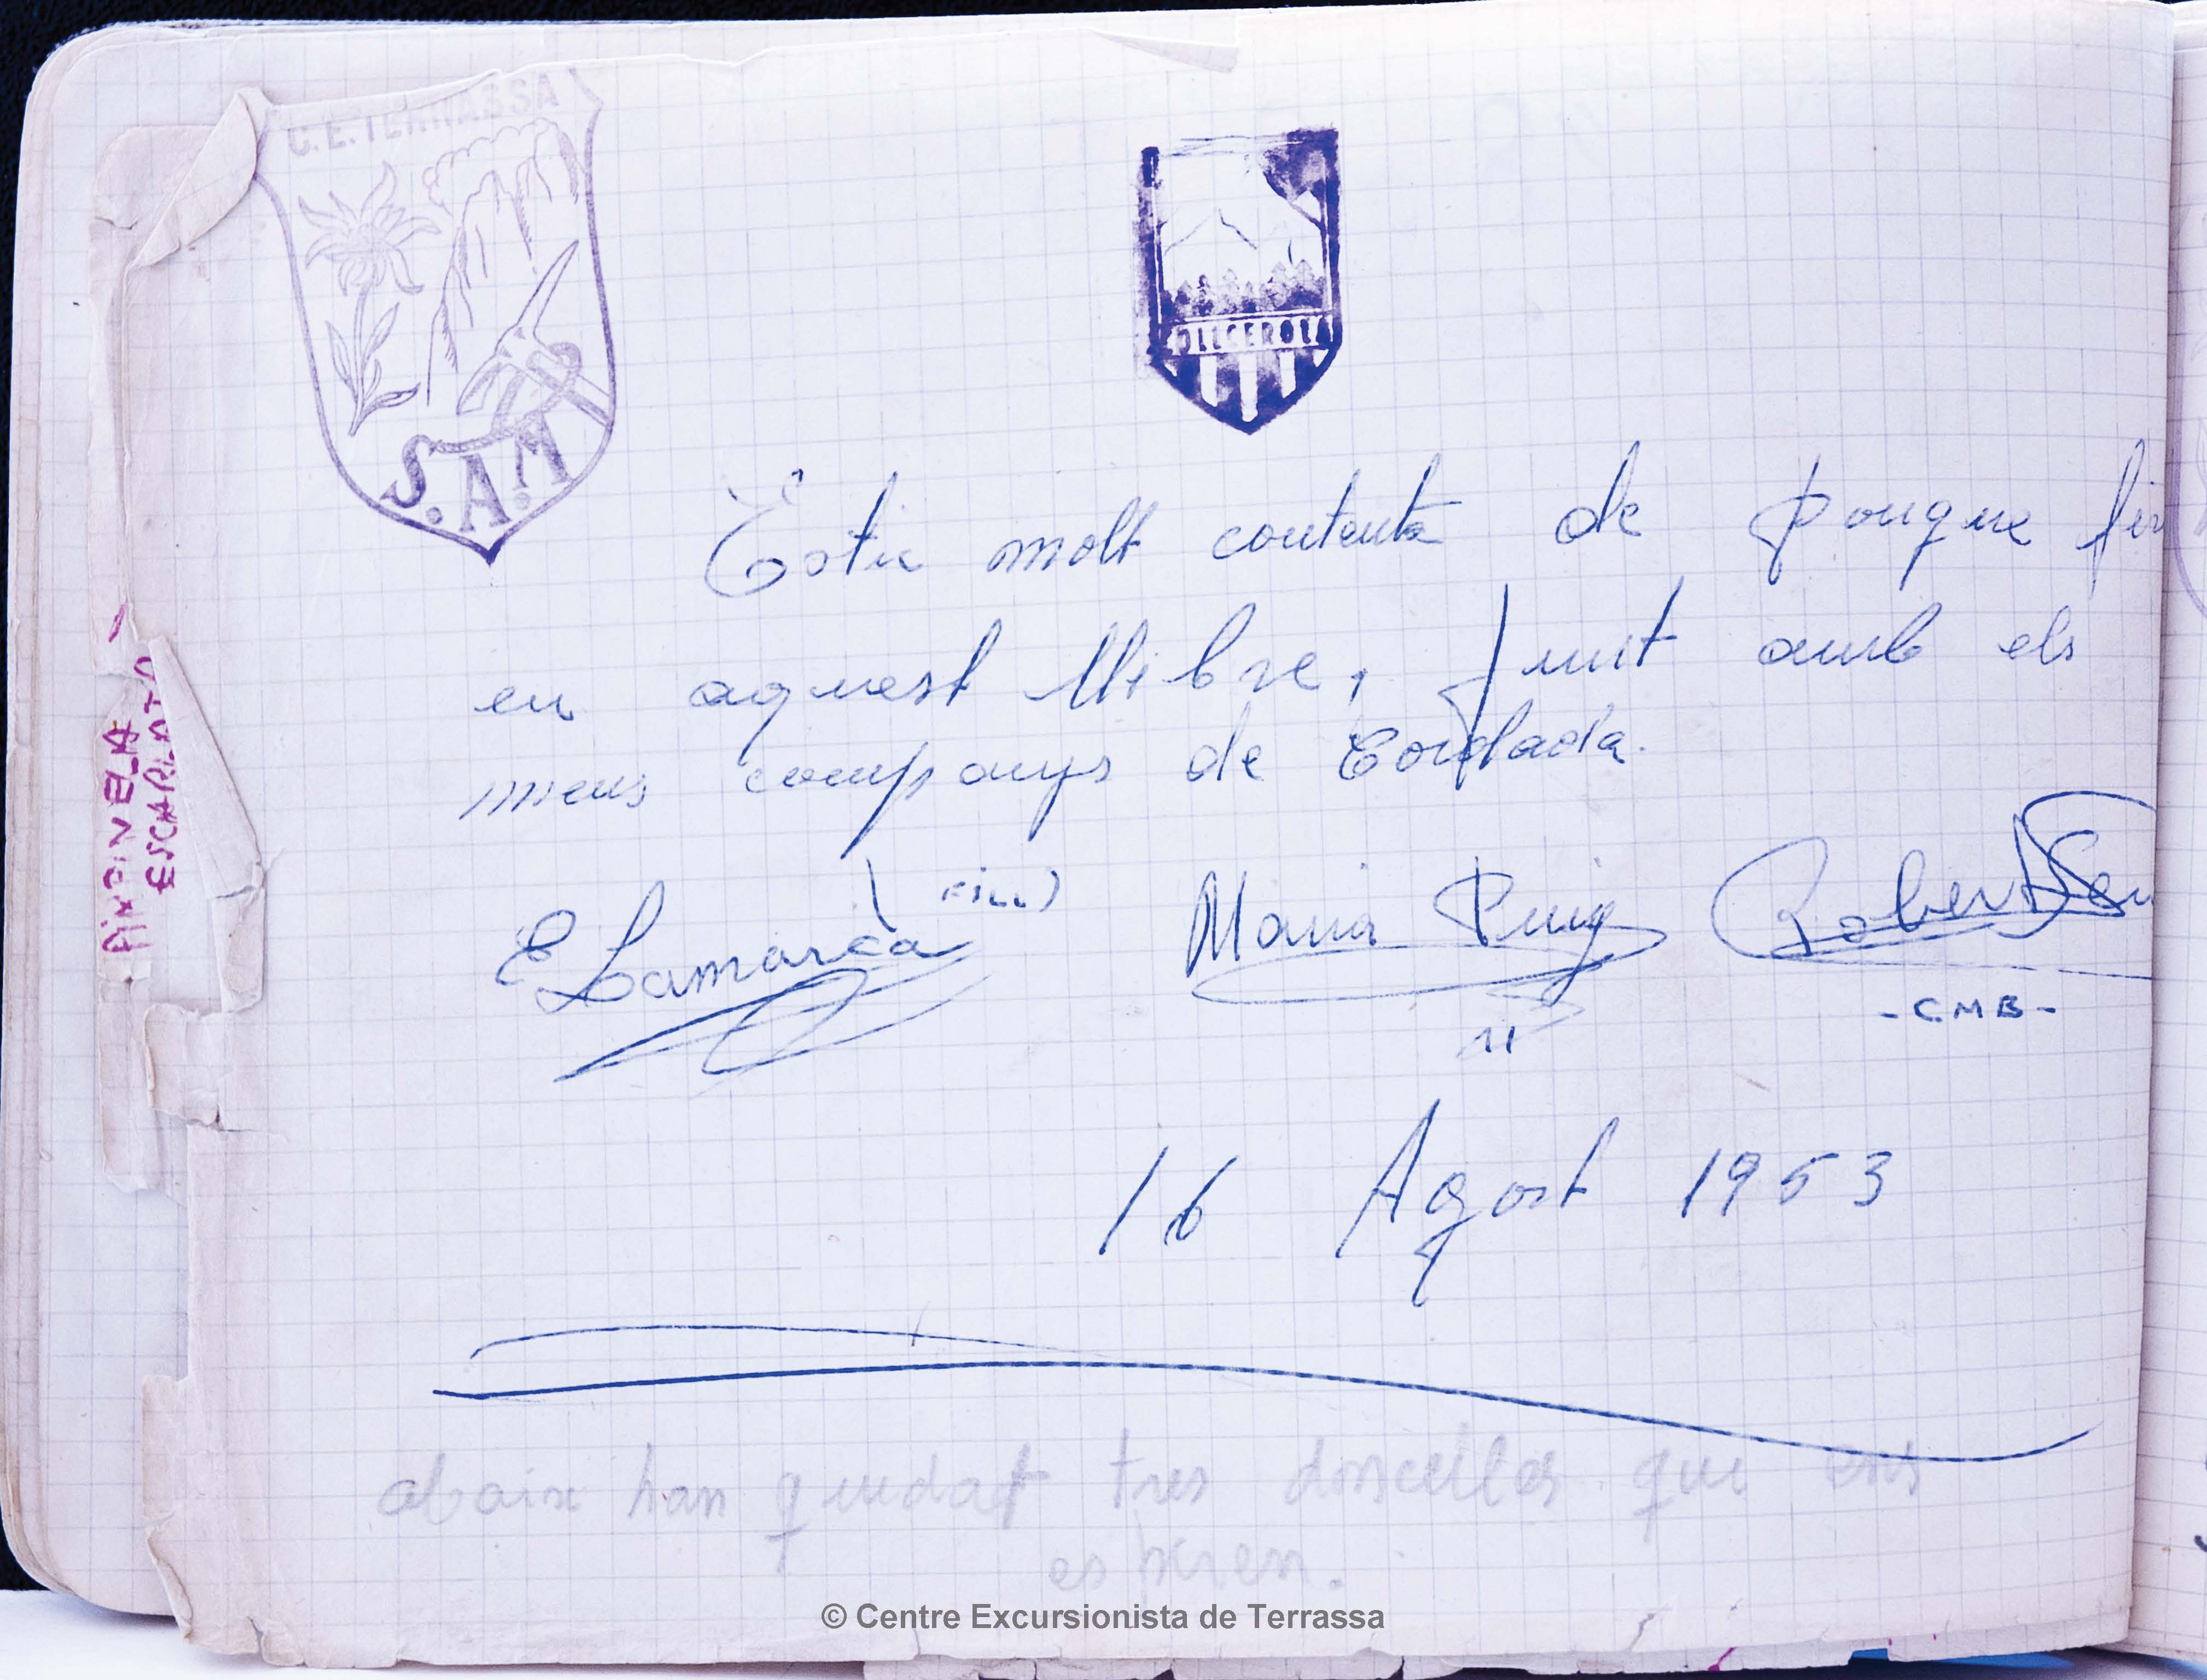 C.E. TERRASSA
S.A.M
Estic molt contenta de pougue fir
en aquest llibre, junt amb els
meus companys de Cordada.
E Lamarca (FILL) Maria Puig Robert
-CMB-
16 Agost 1953
abaix han quedat tres doncelles que ens
esperen.
ESCARLATA
© Centre Excursionista de Terrassa